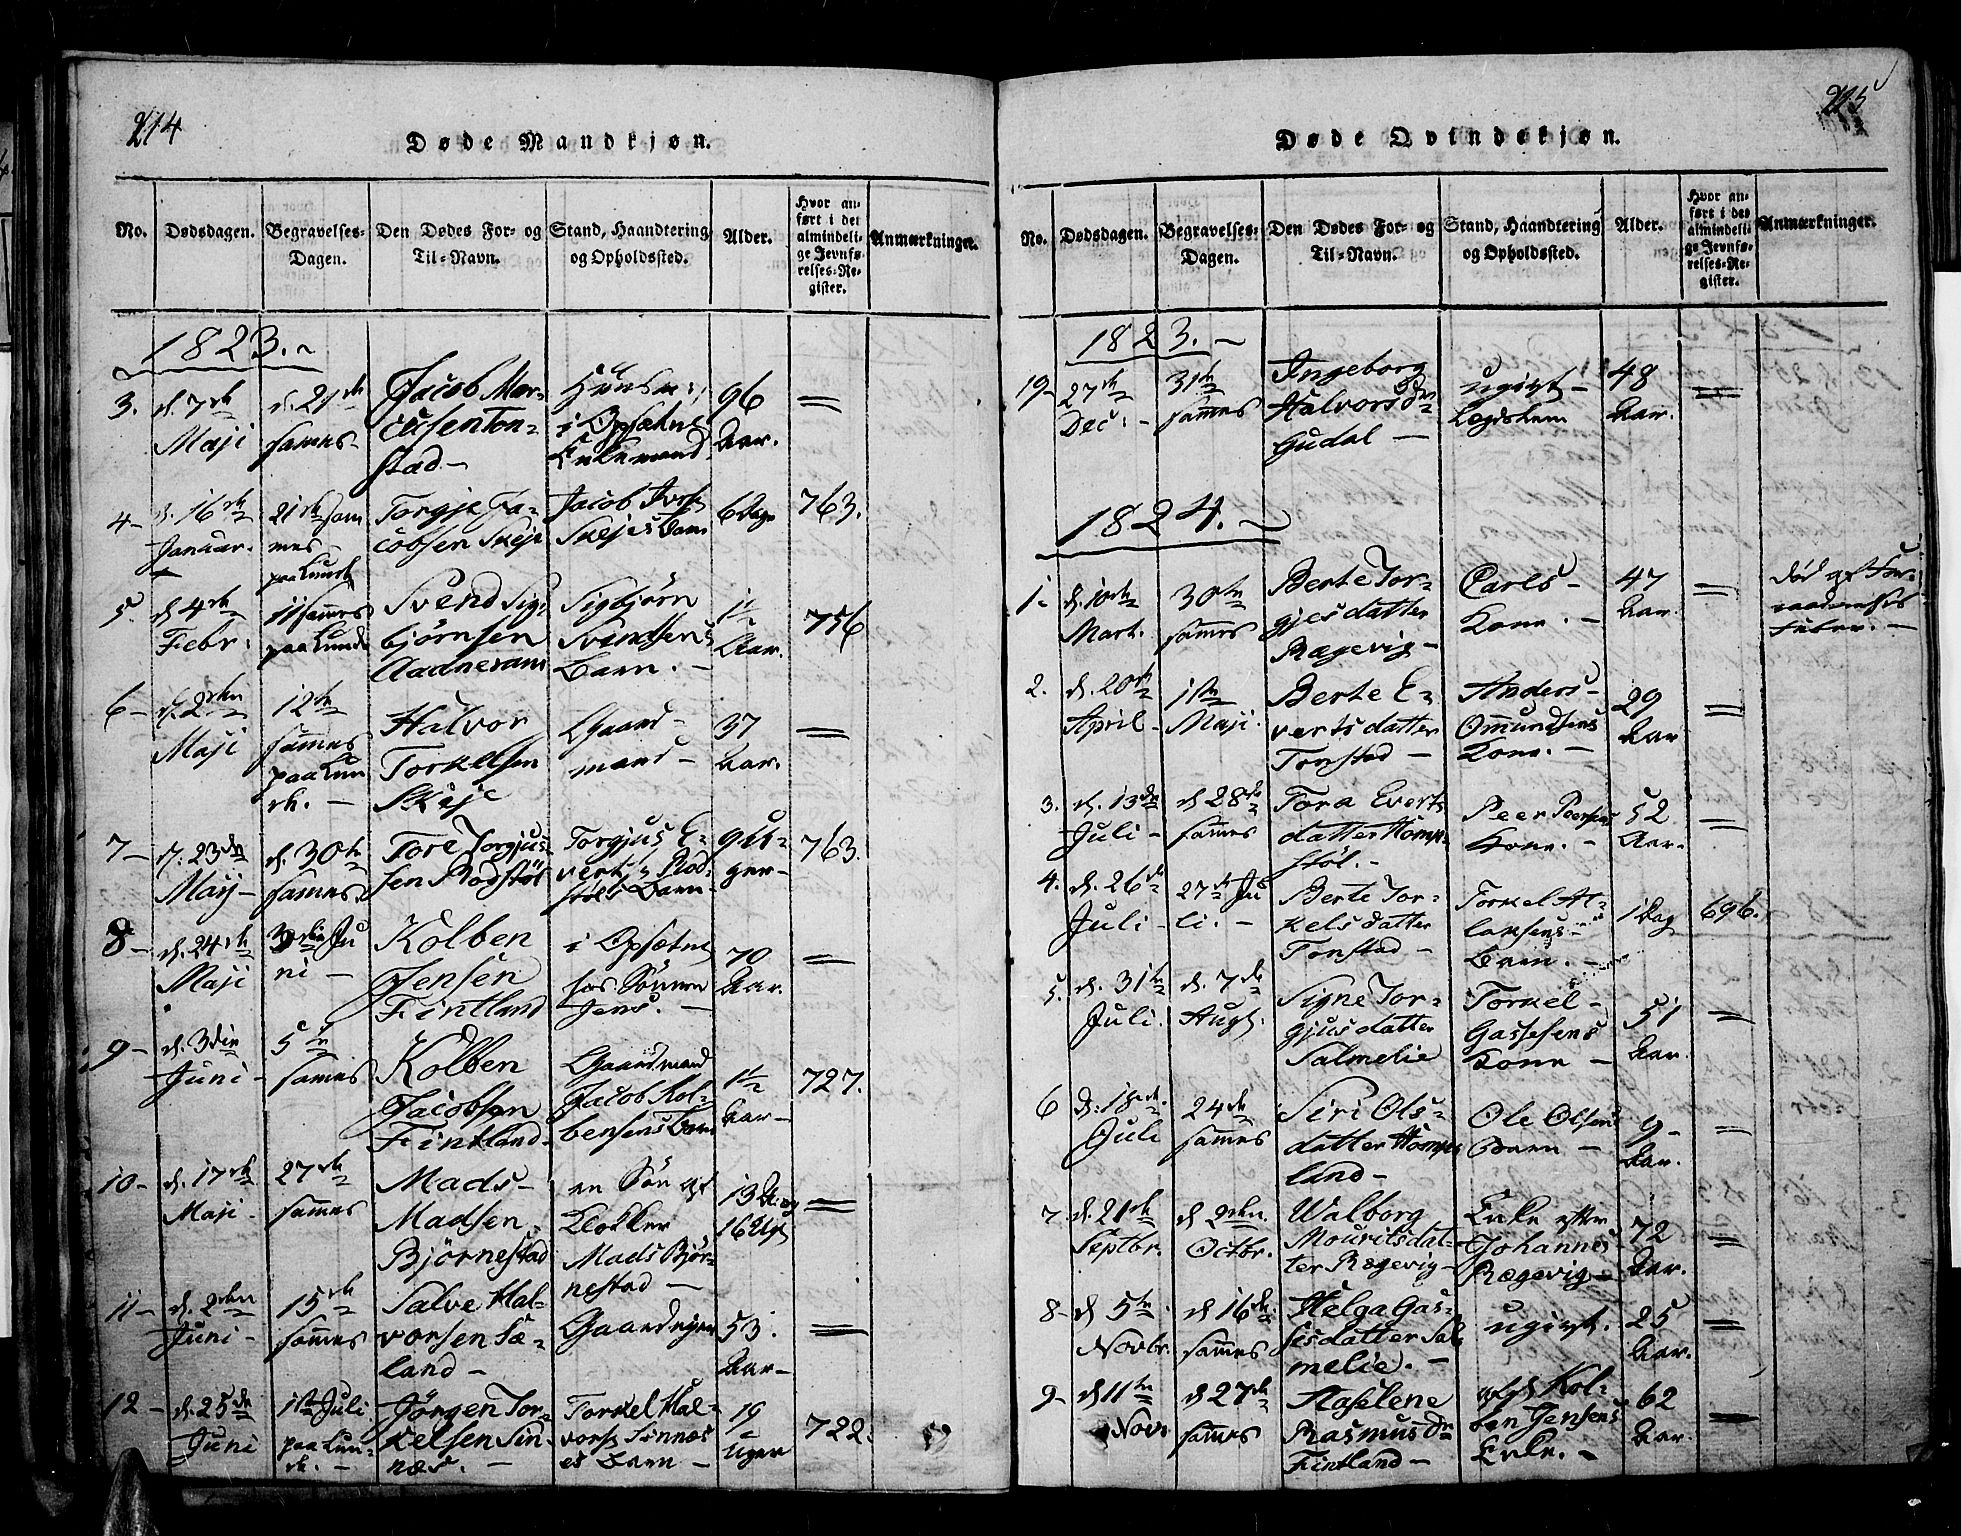 214
Døde Mandkjøn.
No.
Dødsdagen.
Begravelses-
Dagen.
Den Dødes For- og
Til-Navn.
Stand, Haandtering
og Opholdssted.
Alder.
Hvor an-
ført i det
almindeli-
ge Jevnfø-
relses-Re-
gister.
Anmærkninger.
1823.
3.
d. 7de
Maji
d. 21de
sames
Jacob
Ton-
stad
i Opsætne
Enkemand
96
Aar.
4
d. 16de
Januar.
21de sam
mes
paa Lunde
Torgje Ja-
cobsen Skeje
Jacob Ivers
Skejes Barn
6 Dage
763.
5.
d. 4de
Febr.
11 sammes
paa Lunde
Svend Sig-
bjørnsen
Aadneram
Sigbjørn
Svendsens
Barn.
1½
Aar.
756
6
d. 2den
Maji
12te
sammes
paa Lun
de.
Halvor
Torkelsen
Skeje
Gaard-
mand
37
Aar.
7
d. 23de
Maij
d. 30te
sammes.
Tore Torgjus-
sen Rodstøl
Torgjus E-
verts Rod-
støls Barn
9 U-
ger
763.
8
d. 24de
Maji
Ju
ni
Kolben
Jensen
Fintland
i Opsætne
hos Sønnen
Jens.
70
Aar.
9
d. 3die
Juni
5te
sames
Kolben
Jacobsen
Fintland
Gaardmand
Jacob Kol-
bensens Barn
1½
Aar
727.
10
d. 17de
Maji
27de
sammes
Mads
Madsen
Bjørnestad
en Søn af
Klokker
Mads Bjør-
nestad
13 A. og
16 Ug.
11
d. 2den
Juni
15de
sammes
Salve Hal-
vorsen Sæ-
land
Gaardejer
53.
Aar
12
d. 25de
Juni
1ste Juli
paa Lun-
de.
Jörgen Tor-
kelsen Sin-
næs.
Torkel Hal-
vors Sinnæs
es Barn
19
Uger
722.
Døde Qvindekjøn.
No.
Dødsdagen.
Begravelses-
Dagen.
Den Dødes For- og
Til-Navn.
Stand, Haandtering
og Opholdssted.
Alder.
Hvor an-
ført i det
almindeli-
ge Jevnfø-
relses-Re-
gister.
Anmærkninger.
1823.
19
27de
Dec.
31te
sammes
Ingeborg
Halvorsdr
Gudal
ugivt
Lægdslem
48
Aar.
1824.
1
d. 10de
Mart.
30te
sammes
Berte Tor-
gjesdatter
Rægevig
Carls
Kone.
47
Aar
død af For-
raadnelses
Feber.
2.
d. 20de
April
1ste
Maji.
Berte E-
vertsdatter
Tonstad
Anders
Omundsens
Kone.
29
Aar
3.
d. 13de
Juli
d. 28de
sammes
Tora Everts
datter Homp-
støl.
Peer Peersens
Kone.
52
Aar.
4.
d. 26de
Juli
27de Ju
li.
Berte Tor-
kelsdatter
Tonstad
Torkel At-
laksens
Barn.
1 Dag
696.
5.
d. 31te
Juli.
d. 7de
Augt.
Signe Tor-
gjusdatter
Salmelie
Torkel
Gassesens
Kone
51
Aar.
6
d. 18de
Juli
24de
sammes
Siri Ols-
datter Homp-
land
Ole Olsens
Barn
9
Aar.
7.
d. 21de
Septbr.
d. 2den.
Octbr.
Walborg
Mouritsdat-
ter Rægevig
Enke efter
Johannes
Rægevig
72
Aar.
8
d. 5te
Novbr.
d. 16de
sammes
Helga Gas-
sesdatter Sal
melie.
ugivt.
25
Aar.
9
d. 11te
Novr
d. 27de
sammes
Haselene
Rasmusdr
Fintland
afgl. Kol-
ben Jensens
Enke.
62
Aar.